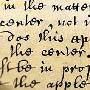 in the matte
center not i
Dos this app
the center
st be in pro
the apple